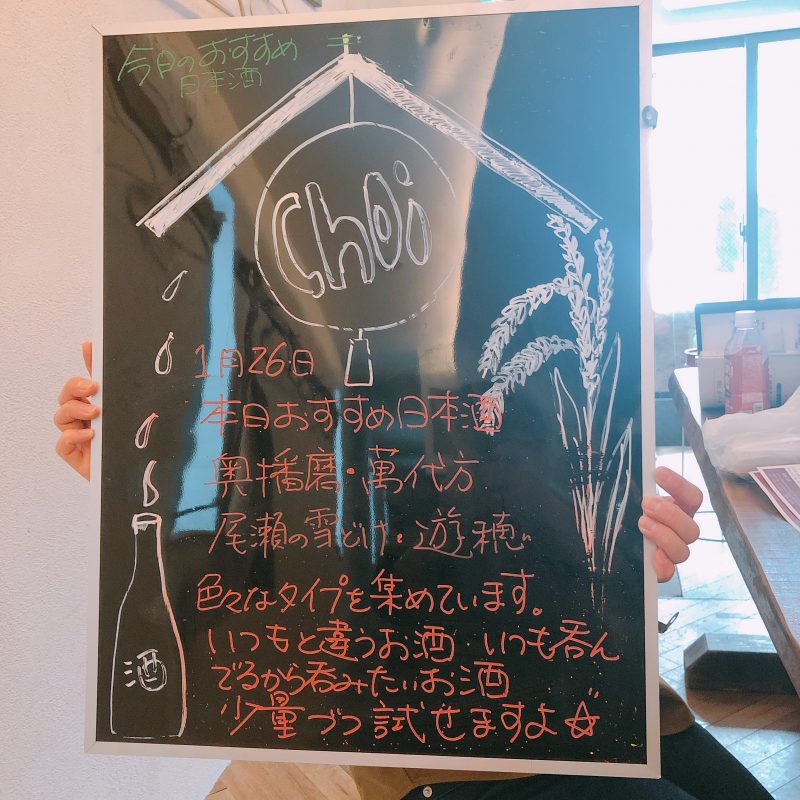 今日のおすすめ
日本酒
Choi
1月26日
本日おすすめ日本酒
奥播磨・萬代方
尾瀬の雪どけ・遊穂
色々なタイプを集めています。
いつもと違うお酒・いつも呑ん
でるから呑みたいお酒
少量づつ試せますよ☆
酒